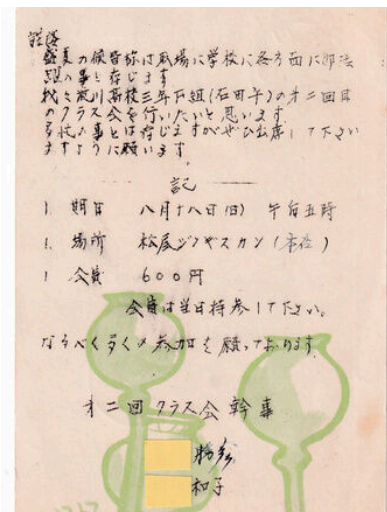 謹啓
盛夏の候皆称は職場に学校に各方面に御活
躍の事と存じます
我々荒川高校三年F組(石田子)の才二回目
のクラス会を行いたいと思います
多忙の事とは存じますがぜひ出席して下さい
ますように願います
記
1. 期日 八月十八日(日) 午后五時
1. 場所 松尾ジンギスカン(本店)
1 会費 600円
会費は当日持参して下さい。
なるべく多くの参加を願っております。
才二回クラス会幹事
和子